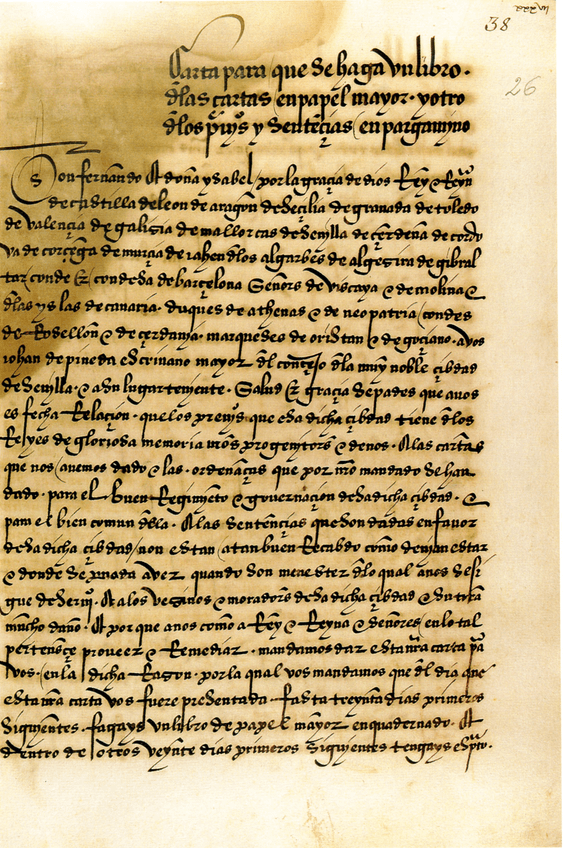 38
26
Carta para que se haga vn libro.
dlas cartas en papel mayor. y otro
dlos preuis y sentēçias en pargamino
Don fernando ⁊ doña ysabel por la graçia de dios Rey ⁊ Reyna
de castilla de leon de aragon de seçilia de granada de toledo
de valençia de galisia de mallorcas de seuilla de çerdeña de cordo
va de corçega de murçia de iahen dlos algarbes de algesira de gibral
tar conde ⁊ condesa de barçelona Señors de viscaya ⁊ de molina ⁊
dlas yslas de canaria. duques de athenas ⁊ de neopatria condes
de Rosellon ⁊ de çerdania. marqueses de oristan ⁊ de goçiano. a vos
iohan de pineda escriuano mayor dl conçejo dla muy noble çibdad
de seuilla. ⁊ a su lugarteniente. Salud ⁊ graçia sepades que a nos
es fecha Relaçion. que los preuis que esa dicha çibdad tiene dlos
Reyes de gloriosa memoria nros progenitors ⁊ de nos. A las cartas
que nos auemos dado ⁊ las. ordenāças que por nro mandado se han
dado. para el buen Regimiēto ⁊ gouernaçion desa dicha çibdad. ⁊
para el bien comun dlla. A las sentēçias que son dadas en fauor
desa dicha çibdad non estan a tan buen Recabdo como deuian estar
⁊ donde se pueda aver quando son menester dlo qual a nos se si
gue deserui. A a los vesinos ⁊ moradors desa dicha çibdad ⁊ su tierra
mucho daño. A por que a nos como a Rey ⁊ Reyna ⁊ señores en lo tal
pertenesçe proueer ⁊ Remediar. mandamos dar esta nra carta pa
vos. en la dicha Rason. por la qual vos mandamos que dl dia que
esta nra carta vos fuere presentada. fasta treynta dias primeros
siguientes. fagays vn libro de papel mayor enquadernado. A
dentro de otros veynte dias primeros siguientes tengays escpto.